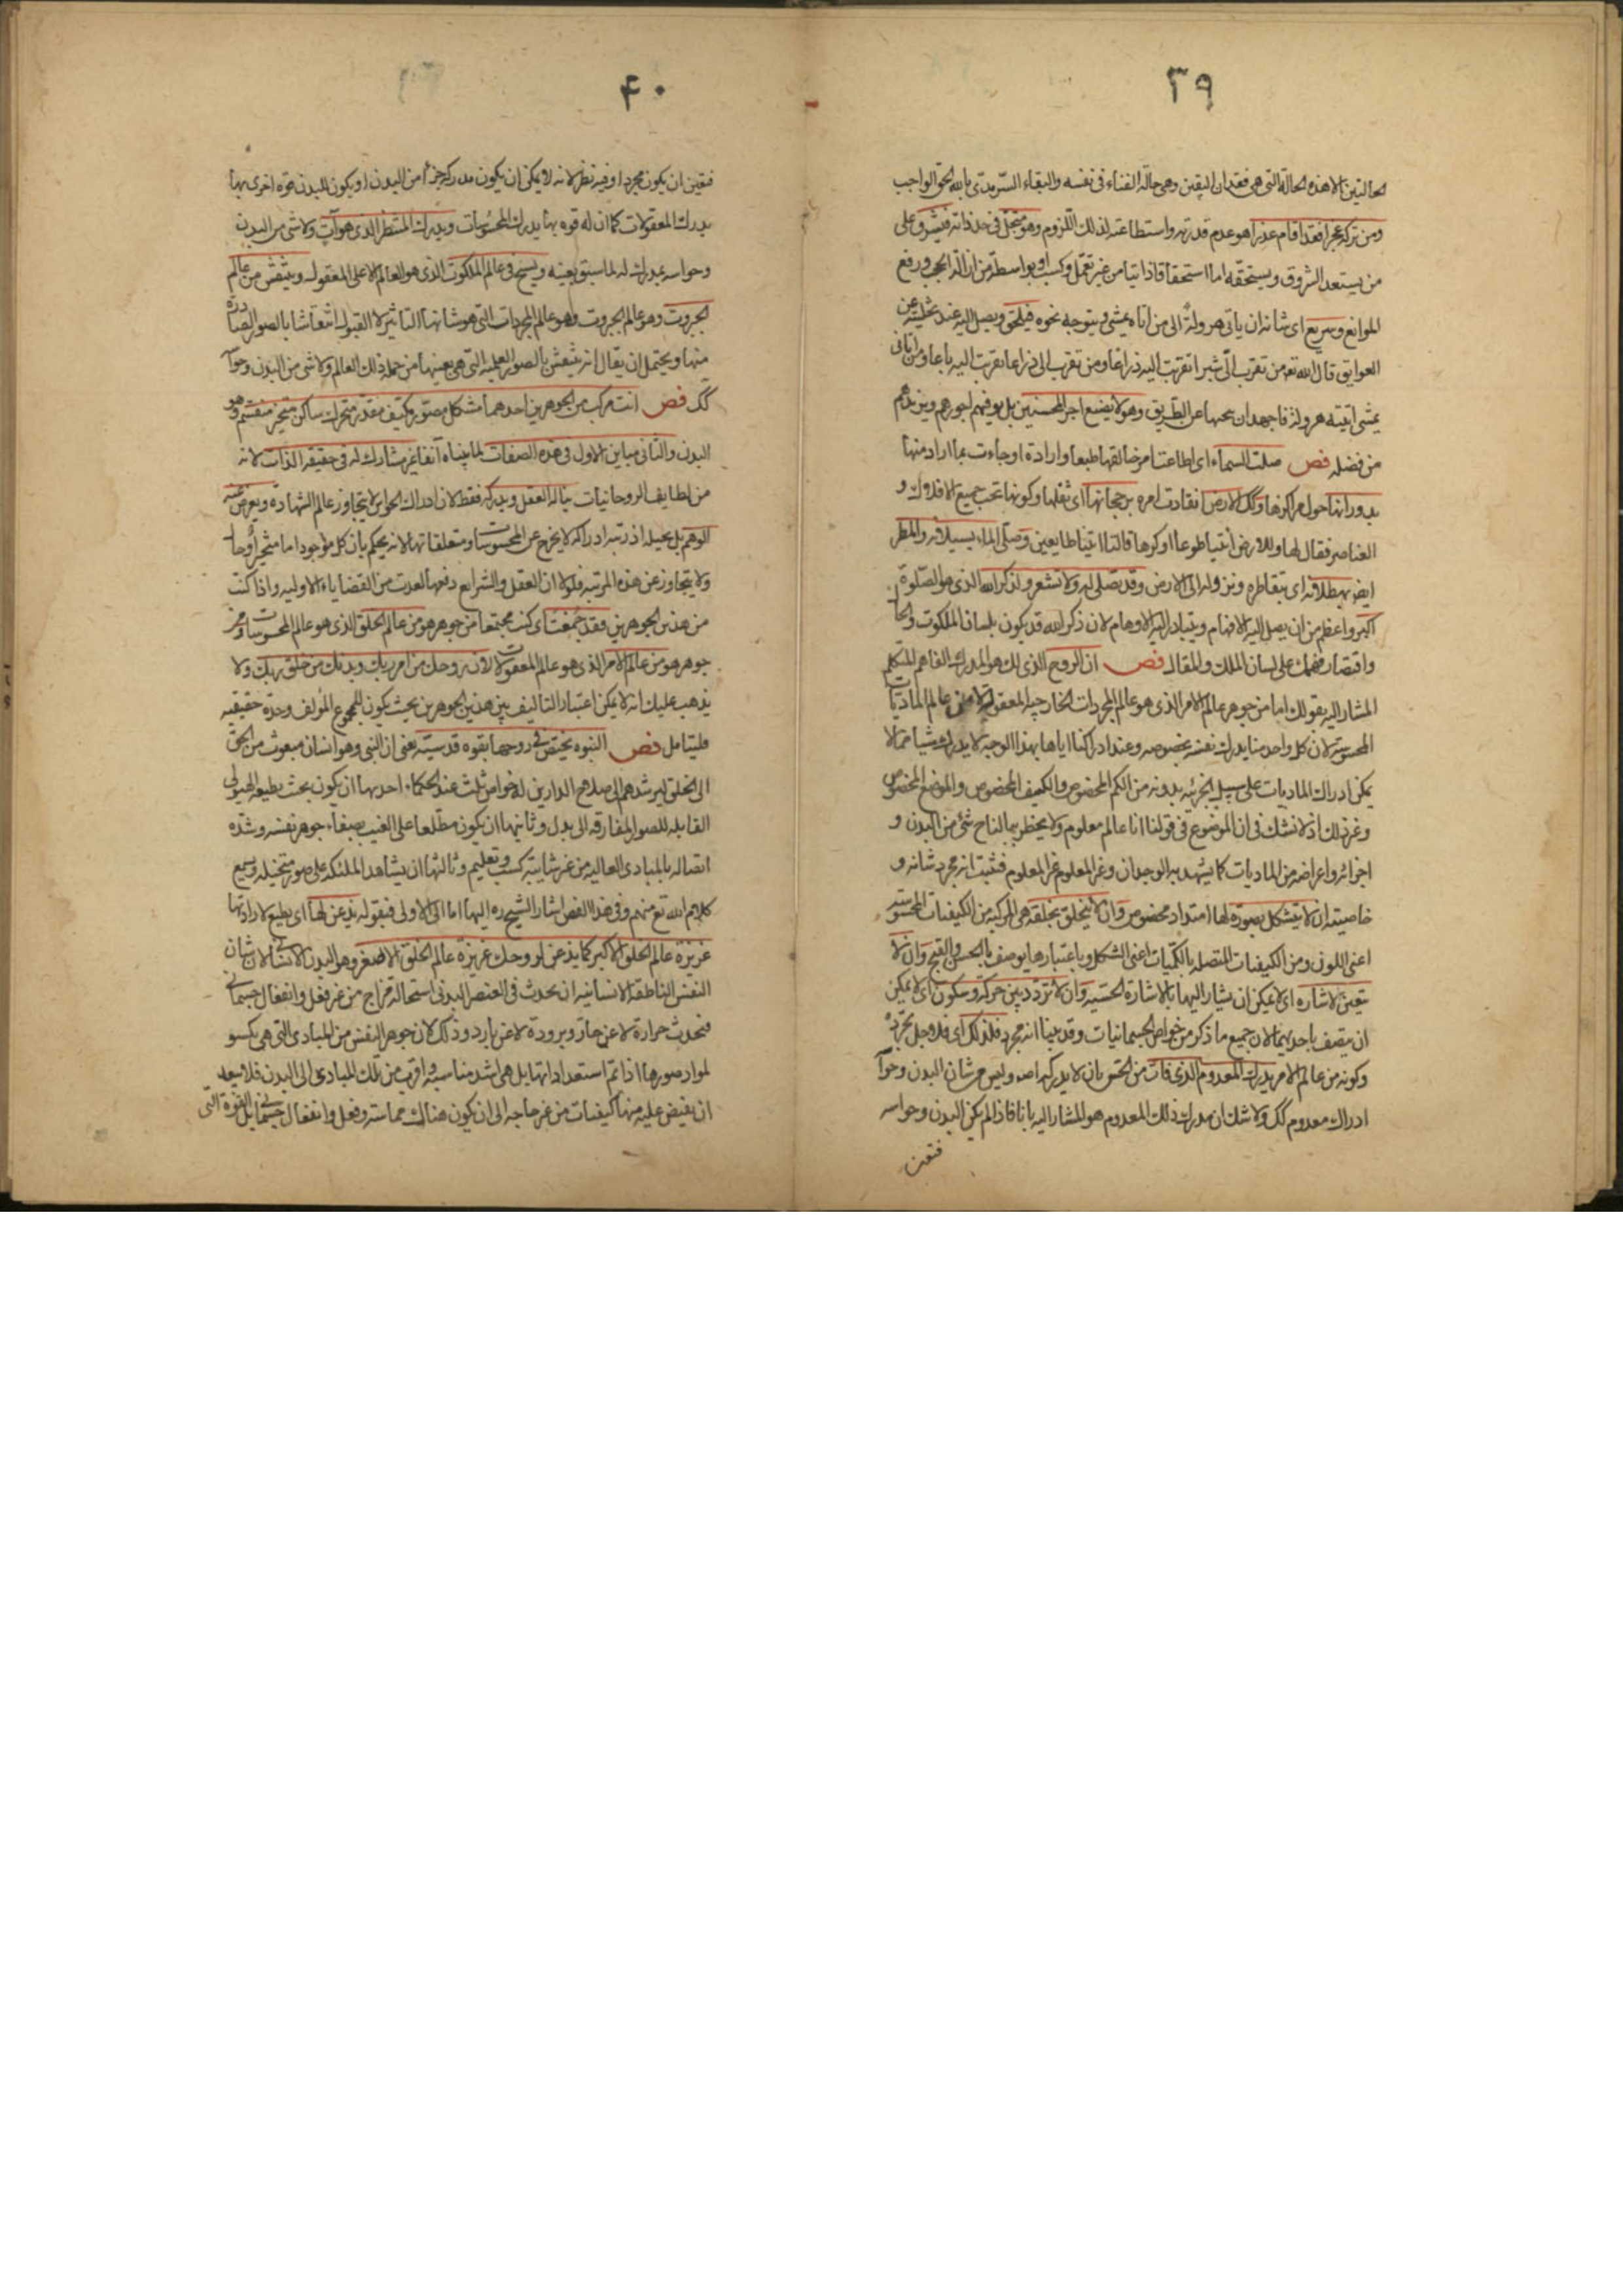 ٣٩
الحالتين الا هذه الحالة التى هى فقدان اليقين وهى حالة الفناء فى نفسه والبقاء السرمدى بالله الحق الواجب
ومن تركه عجزا فقد اقام عذرا هو عدم قدرته واستطاعته لذلك اللزوم وهو متجل فى حد ذاته فيشرق على
من يستعد الشروق ويستحقه اما استحقاقا ذاتيا من غير تعمل وكسب او بواسطة من ازالة الحجب ورفع
الموانع وسريع اى شانه ان ياتى هرولة الى من اتاه يمشى ويتوجه نحوه فيلحق ويصل اليه عند تخليته عن
العوايق قال الله تع من تقرب الى شبرا تقربت اليه ذراعا ومن تقرب الى ذراعا تقربت اليه باعا ومن اتانى
يمشى اتيته هرولة فاجهد ان عن الطريق وهو لا يضيع اجر المحسنين بل يوفيهم اجورهم ويزيدهم
من فضله فص صلت السماء اى اطاعت امر خالقها طبعا وارادة او جاءت بما اراد منها
بدورانها حول مركزها وكك الارض انقادت امره برجحانها اى ثقلها وكونها تحت جميع الافلاك و
العناصر فقال لها وللارض ائتيا طوعا او كرها قالتا اتينا طايعين وصلى الماء بسيلانه والمطر
ايضا بهطلانه اى بتقاطره ونزوله الى الارض وقد تصلى له ولا تشعر ولذكر الله الذى هو الصلوة
اكبر واعظم من ان يصل اليه الافهام ويتبادر اليه الاوهام لان ذكر الله قد يكون بلسان الملكوت والحال
واقتصار فهمك على لسان الملك والمقال فص ان الروح الذى لك هو المدرك الفاهم المتكلم
المشار اليه بقولك انا من جوهر عالم الامر الذى هو عالم المجردات الخارجية المعقولة لا من عالم الماديات
المحسوسة لان كل واحد منا يدرك نفسه بخصوصه وعند ادراكنا اياها بهذا الوجه لا يدرك شيا مما لا
يمكن ادراك الماديات على سبيل الجزئية بدونه من الكم المخصوص والكيف المخصوص والوضع المخصوص
وغير ذلك اذ لا نشك فى ان الموضوع فى قولنا انا عالم معلوم ولا يخطر ببالنا ح شئ من البدن و
اجزائه واعراضه من الماديات كما يشهد به الوجدان وغير المعلوم غير المعلوم فثبت انه مجرد شانه و
خاصيته ان لا يتشكل بصورة لها امتداد مخصوص وان لا يتخلق بخلقة هى المركبة من الكيفيات المحسوسة
اعنى اللون ومن الكيفيات المتصلة بالكميات اعنى الشكل وباعتبارها يوصف بالحسن والقبح وان لا
يتعين لاشارة اى لا يمكن ان يشار اليها بالاشارة الحسية وان لا تتردد بين حركة وسكون اى لا يمكن
ان يتصف باحديهما لان جميع ما ذكر من خواص الجسمانيات وقد بينا انه مجرد فلذلك اى فلاجل تجرده
وكونه من عالم الامر يدرك المعدوم الذى فات من الحس بان لا يدركه اصلا وليس من شان البدن وحواسه
ادراك معدوم كك ولا شك ان مدرك ذلك المعدوم هو المشار اليه بانا فاذا لم يكن البدن وحواسه
فتعين
٤٠
فتعين ان يكون مجردا وفيه نظر لانه لا يمكن ان يكون مدركه جزءا من البدن او يكون للبدن قوة اخرى بها
يدرك المعقولات كما ان له قوة بها يدرك المحسوسات ويدرك المنتظر الذى هو آت ولا شئ من البدن
وحواسه بمدرك له لما سبق بعينه ويسبح فى عالم الملكوت الذى هو العالم الاعلى المعقول وينتقش من عالم
الجبروت وهو عالم الجبروت وهو عالم المجردات التى هو شانها التاثير لا القبول انتقاشا بالصور الصادرة
منها ويحتمل ان يقال انه ينتقش بالصور العلمية التى هى بعينها من جملة ذلك العالم ولا شئ من البدن وحواسه
كك فص انت مركب من الجوهرين احدهما مشكل مصور مكيف مقدر متحرك ساكن متحيز منقسم وهو
البدن والثانى مباين للاول فى هذه الصفات لما بيناه آنفا غير مشارك له فى حقيقة الذات لانه
من لطايف الروحانيات يناله العقل ويدركه فقط لان ادراك الحواس لا يتجاوز عالم الشهادة ويعرض عنه
الوهم بل يحيله اذ رتبة ادراكه لا يخرج عن المحسوسات ومتعلقاتها لانه يحكم بان كل موجود اما متحيز او حال
ولا يتجاوز عن هذه المرتبة فلولا ان العقل والشرايع دفعها لعدت من القضايا الاولية واذا كنت
من هذين الجوهرين فقد جمعت اى كنت مجتمعا من جوهر هو من عالم الخلق الذى هو عالم المحسوسات ومن
جوهر هو من عالم الامر الذى هو عالم المعقولات لان روحك من امر ربك وبدنك من خلق ربك ولا
يذهب عليك انه لا يمكن اعتبار التاليف بين هذين الجوهرين بحيث يكون للمجموع المؤلف وحدة حقيقية
فليتامل فص النبوة يختص فى روحها بقوة قدسية يعنى ان النبى وهو انسان مبعوث من الحق
الى الخلق ليرشدهم الى صلاح الدارين له خواص ثلث عند الحكماء احديها ان يكون بحيث يطيعه الهيولى
القابلة للصور المفارقة الى بدل وثانيها ان يكون مطلعا على الغيب بصفاء جوهر نفسه وشدة
اتصاله بالمبادى العالية من غير شايبة كسب وتعليم وثالثها ان يشاهد الملئكة على صور متخيلة ويسمع
كلام الله تع منهم وفى هذا الفص اشار الشيخ ره اليها اما الى الاولى فبقوله يذعن لها اى يطيع لارادتها
غريزة عالم الخلق الاكبر كما يذعن لروحك غريزة عالم الخلق الاصغر وهو البدن الانسانى لان شان
النفس الناطقة الانسانية ان يحدث فى العنصر البدنى استحالة مزاج من غير فعل وانفعال جسمانى
فتحدث حرارة لا عن حار وبرودة لا عن بارد وذلك لان جوهر النفس من المبادى التى هى يكسو
لمواد صورها اذا تم استعداداتها بل هى اشد مناسبة واقرب من تلك المبادى الى البدن فلا يبعد
ان يفيض عليه منها كيفيات من غير حاجة الى ان يكون هناك مماسة وفعل وانفعال جسمانى بل القوة التى